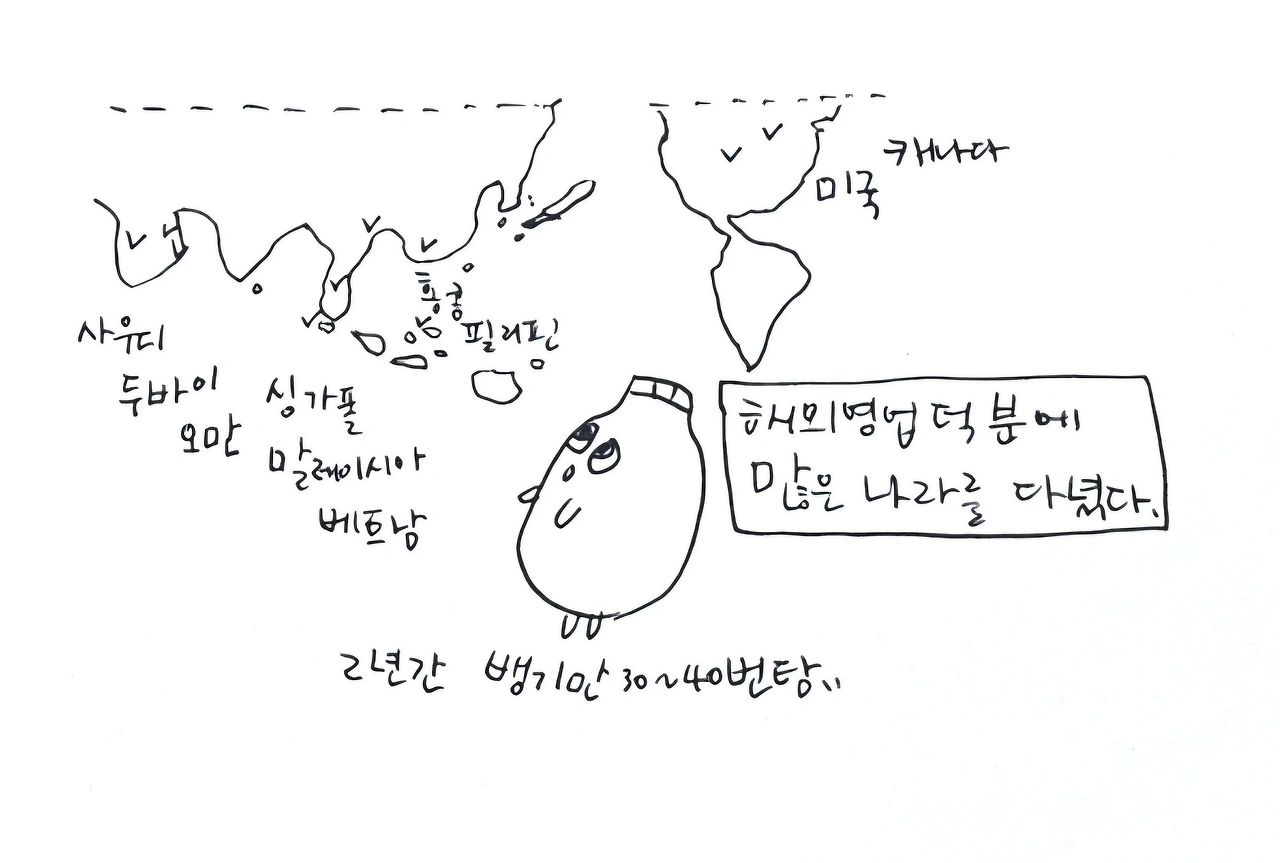 캐나다
미국
홍콩
필리핀
사우디
두바이
오만
싱가폴
말레이시아
베트남
해외영업 덕분에
많은 나라를 다녔다.
2년간 뱅기만 30~40번탐..